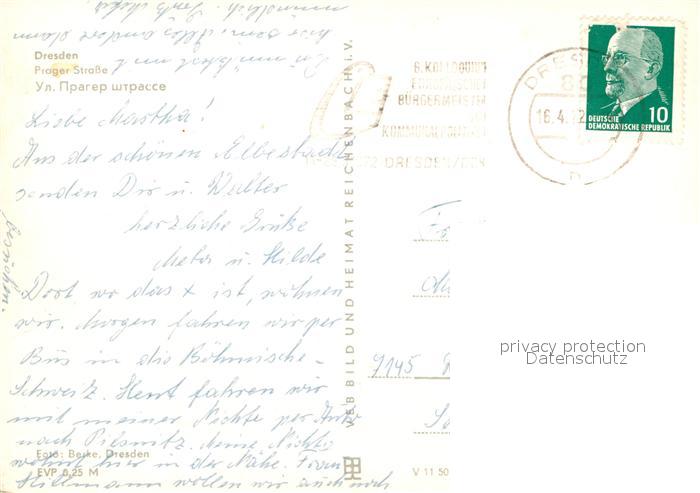 Dresden
Prager Straße
Ул. Прагер штрассе
Liebe Martha!
Aus der schönen Elbestadt
senden Dir u. Walter
herzliche Grüße
Meta u. Hilde
Dort wo das x ist, wohnen
wir. Morgen fahren wir per
Bus in die Böhmische-
Schweiz. Heut fahren wir
mit meiner Nichte per Auto
nach Pilsnitz. Meine Nichte
wohnt hier in der Nähe. Frau
Hillmann wollen wir auch noch
Foto: Berke, Dresden
EVP 0,25 M
VEB BILD UND HEIMAT REICHENBACH i. V.
V 11 50
6. KOLLOQUIUM
EUROPÄISCHER
BÜRGERMEISTER
UND
KOMMUNALPOLITIKER
1972 DRESDEN/DDR
DRESDEN
16.4.72
DEUTSCHE
DEMOKRATISCHE REPUBLIK
10
9145
privacy protection
Datenschutz